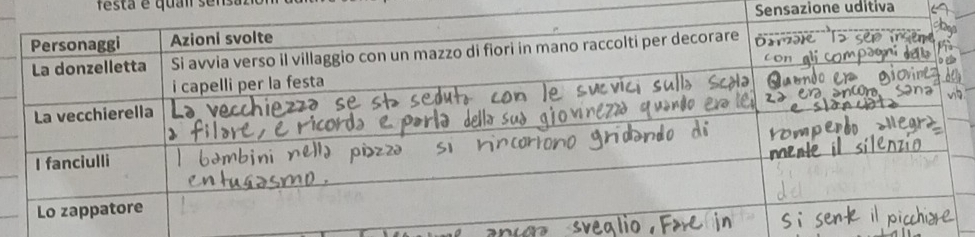 festa e quali sensazioni uditive
Sensazione uditiva
Personaggi Azioni svolte
La donzelletta Si avvia verso il villaggio con un mazzo di fiori in mano raccolti per decorare
i capelli per la festa
Danzare la sera insieme
con gli compagni della
La vecchierella La vecchiezza se sta seduta con le sue vici sulla scala
a filare, e ricorda e parla della sua giovinezza quando era lei
Quando era giovinez
za era ancora sana
e slanciata
I fanciulli I bambini nella piazza si rincorrono gridando di
entusasmo.
rompendo allegra=
mente il silenzio
Lo zappatore
ancora sveglio, Fare in
si sente il picchiare